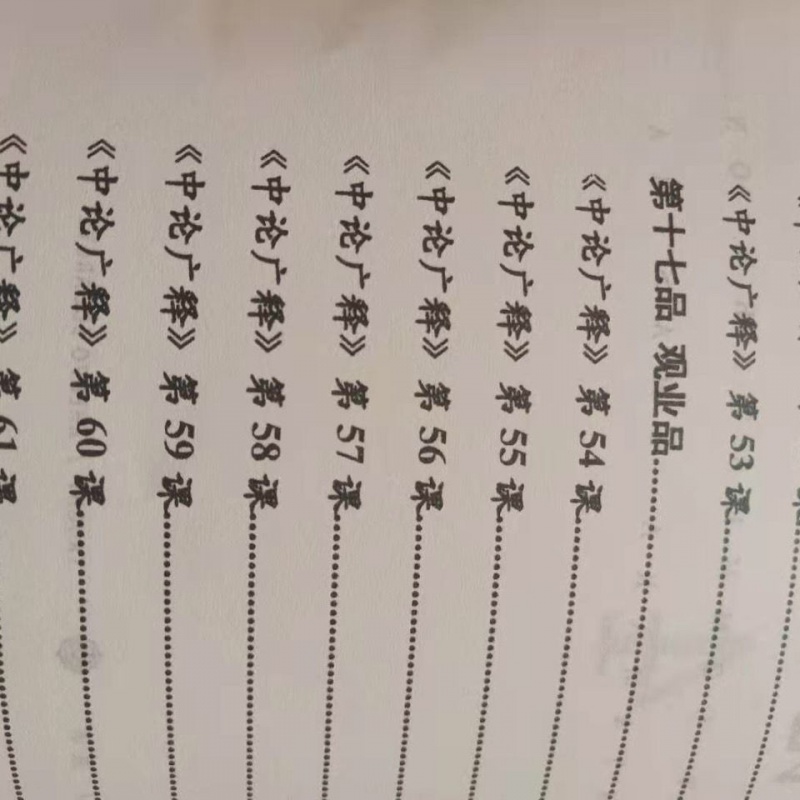 《中论广释》第 53 课
第十七品 观业品
《中论广释》第 54 课
《中论广释》第 55 课
《中论广释》第 56 课
《中论广释》第 57 课
《中论广释》第 58 课
《中论广释》第 59 课
《中论广释》第 60 课
《中论广释》第 61 课